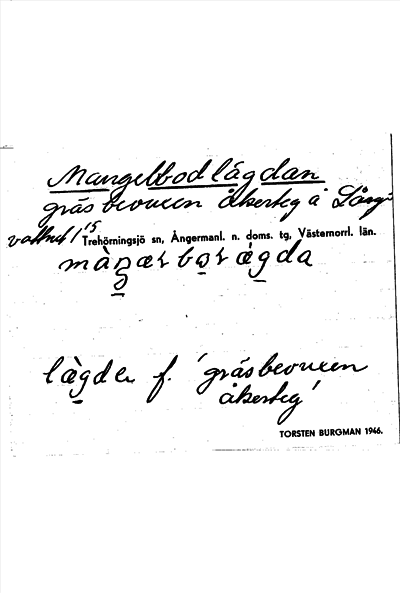 Mangelbodlägdan
gräsbevuxen åkerteg å Lång-
vattnet 1/15
Trehörningsjö sn, Ångermanl. n. doms. tg, Västernorrl. län.
lägde f. 'gräsbevuxen
åkerteg'
TORSTEN BURGMAN 1946.